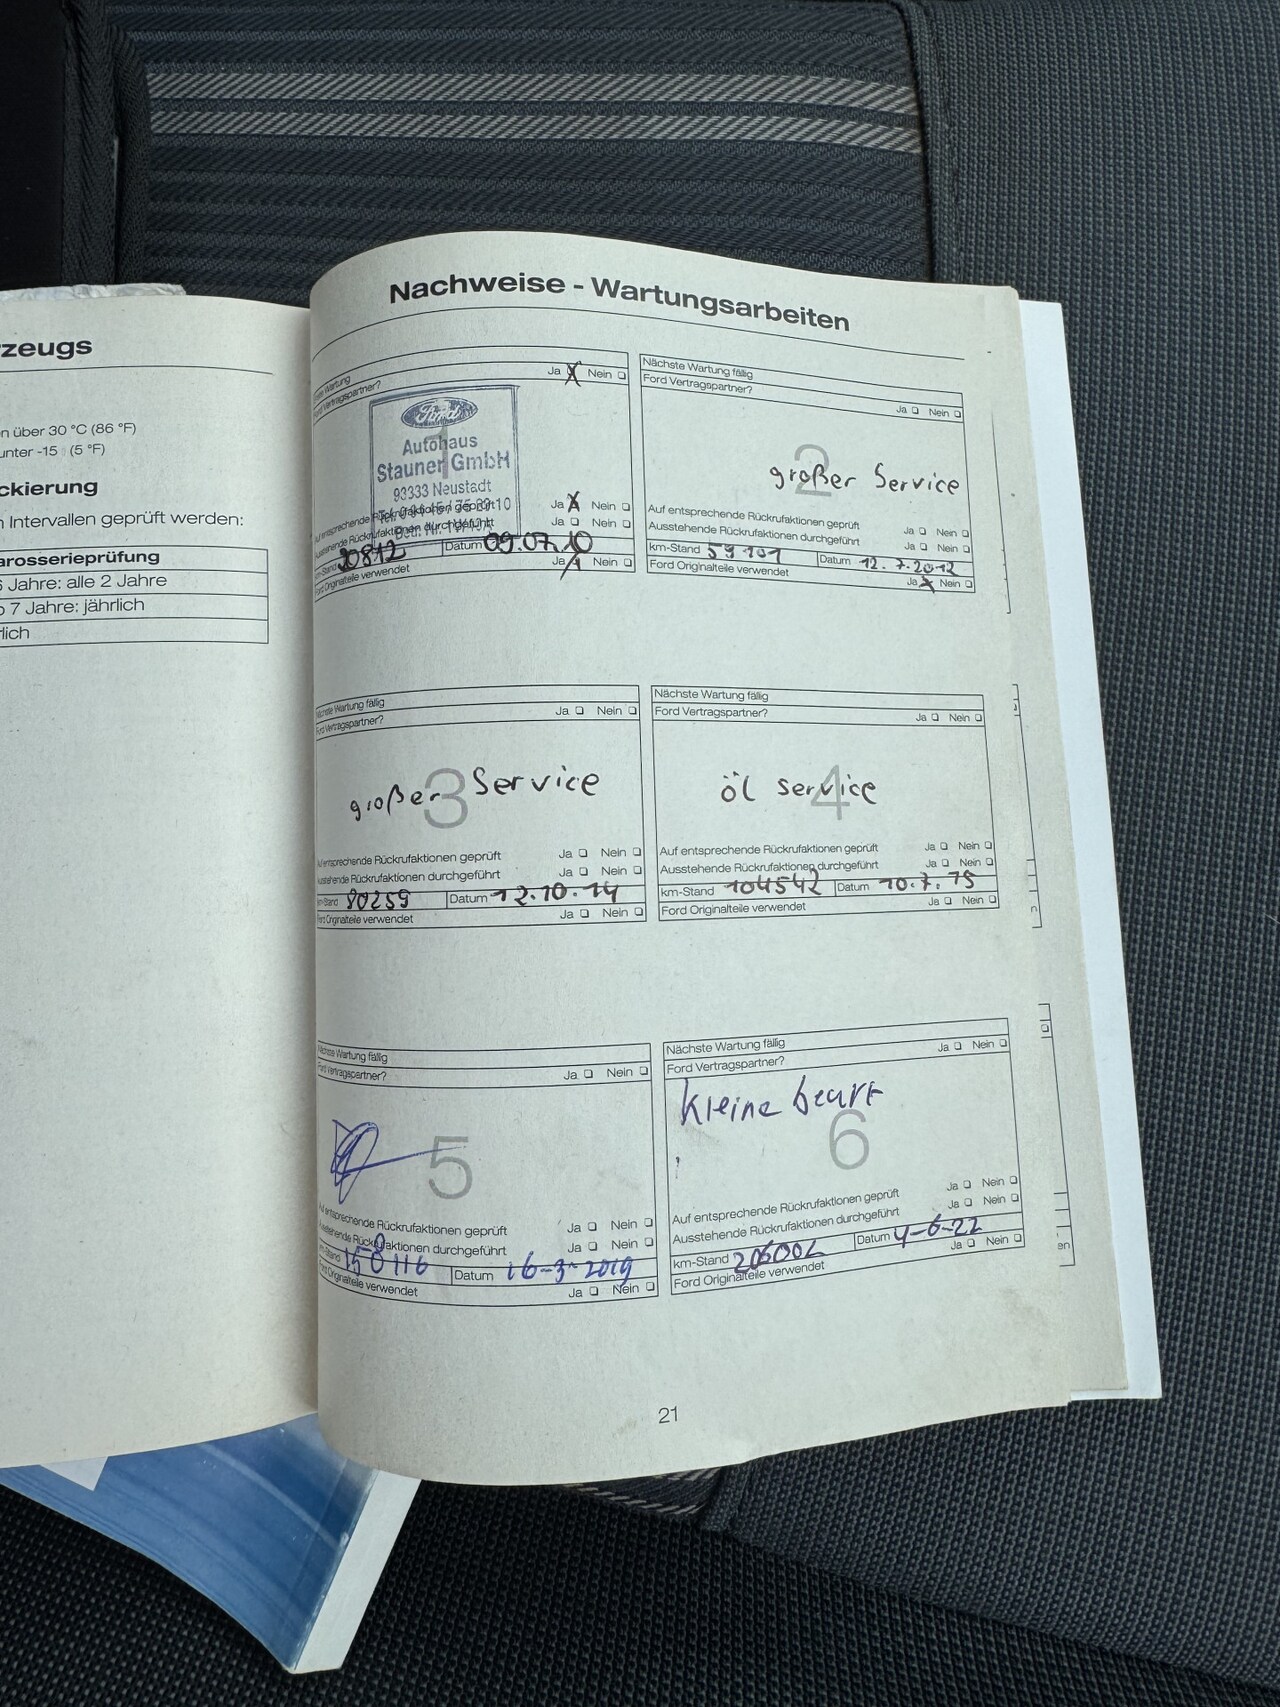 zeugs
n über 30 °C (86 °F)
unter -15 (5 °F)
ckierung
n Intervallen geprüft werden:
arosserieprüfung
6 Jahre: alle 2 Jahre
7 Jahre: jährlich
rlich
Nachweise - Wartungsarbeiten
Wartung
Ford Vertragspartner? Ja X Nein
Ford
Autohaus
Stauner GmbH
93333 Neustadt
1
Auf entsprechende Rückrufaktionen geprüft Ja X Nein
Ausstehende Rückrufaktionen durchgeführt Ja Nein
km-Stand 20812 Datum 09.07.10
Ford Originalteile verwendet Ja X Nein
Nächste Wartung fällig
Ford Vertragspartner? Ja Nein
2
großer Service
Auf entsprechende Rückrufaktionen geprüft Ja Nein
Ausstehende Rückrufaktionen durchgeführt Ja Nein
km-Stand 59101 Datum 12.7.2012
Ford Originalteile verwendet Ja X Nein
Nächste Wartung fällig
Ford Vertragspartner? Ja Nein
3
großer Service
Auf entsprechende Rückrufaktionen geprüft Ja Nein
Ausstehende Rückrufaktionen durchgeführt Ja Nein
km-Stand 80259 Datum 12.10.14
Ford Originalteile verwendet Ja Nein
Nächste Wartung fällig
Ford Vertragspartner? Ja Nein
4
öl service
Auf entsprechende Rückrufaktionen geprüft Ja Nein
Ausstehende Rückrufaktionen durchgeführt Ja Nein
km-Stand 104542 Datum 10.7.15
Ford Originalteile verwendet Ja Nein
Nächste Wartung fällig
Ford Vertragspartner? Ja Nein
5
Auf entsprechende Rückrufaktionen geprüft Ja Nein
Ausstehende Rückrufaktionen durchgeführt Ja Nein
km-Stand Datum 16-3-2019
Ford Originalteile verwendet Ja Nein
Nächste Wartung fällig
Ford Vertragspartner? Ja Nein
kleine
6
Auf entsprechende Rückrufaktionen geprüft Ja Nein
Ausstehende Rückrufaktionen durchgeführt Ja Nein
km-Stand Datum 4-6-22
Ford Originalteile verwendet Ja Nein
n
en
21